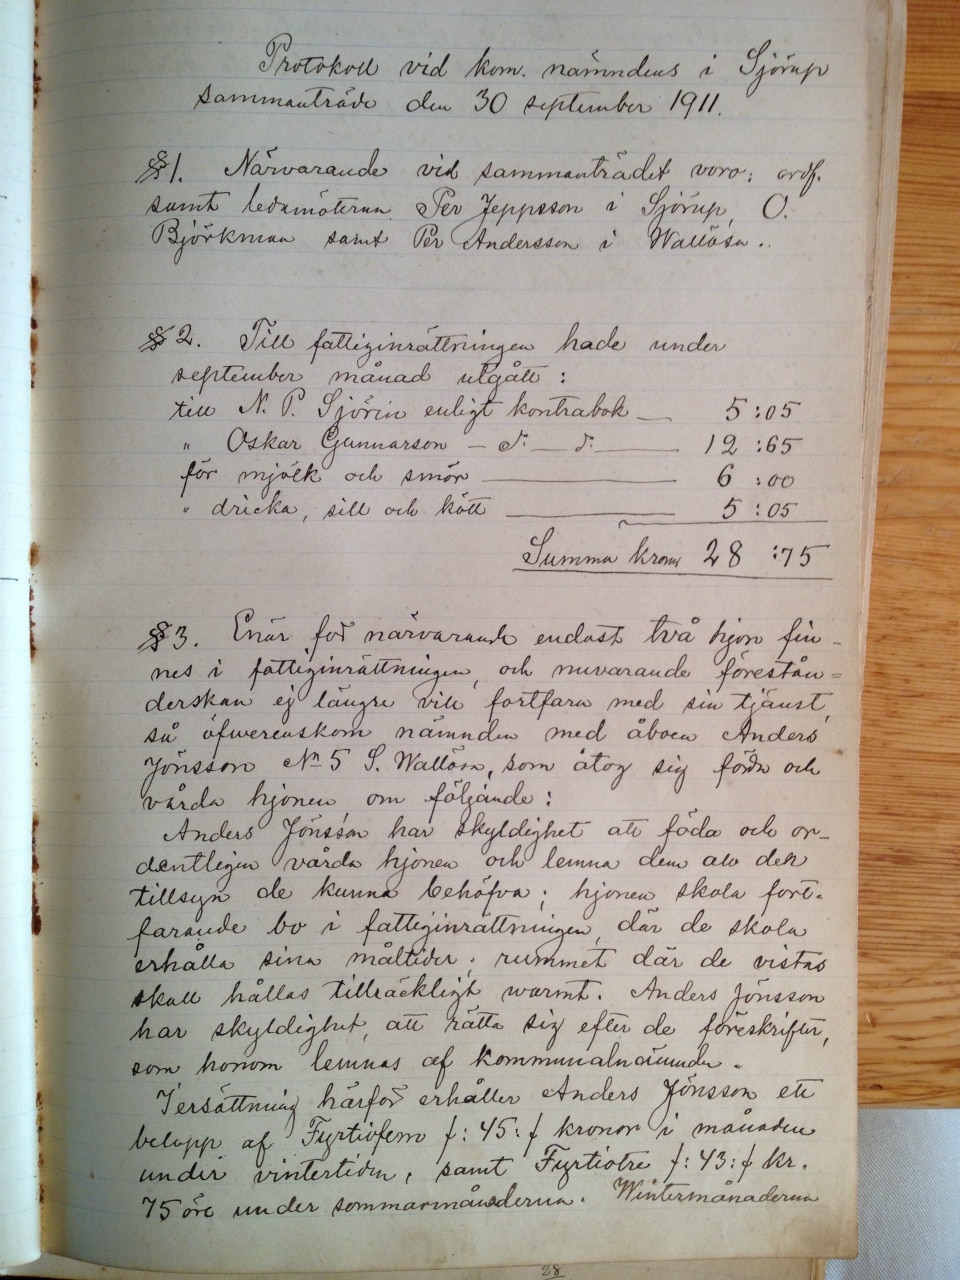 Protokoll vid kom. nämndens i Sjörup
sammanträde den 30 september 1911.
§1. Närvarande vid sammanträdet voro: ordf.
samt ledamöterna Per Jeppsson i Sjörup, O.
Björkman samt Per Andersson i Wallösa.
§2. Till fattiginrättningen hade under
september månad utgått:
till N. P. Sjörin enligt kontrabok — 5:05
" Oskar Gunnarson — d:o — d:o — 12:65
för mjölk och smör — 6:00
" dricka, sill och kött — 5:05
Summa kronor 28:75
§3. Enär for närvarande endast två hjon fin-
nes i fattiginrättningen, och nuvarande förestån-
derskan ej längre vill fortfara med sin tjänst,
så öfwerenskom nämnden med åboen Anders
Jönsson No 5 S. Wallösa, som åtog sig föda och
vårda hjonen om följande:
Anders Jönsson har skyldighet att föda och or-
dentligen vårda hjonen och lemna dem all den
tillsyn de kunna behöfva; hjonen skola fort-
farande bo i fattiginrättningen, där de skola
erhålla sina måltider; rummet där de vistas
skall hållas tillräckligt warmt. Anders Jönsson
har skyldighet, att rätta sig efter de föreskrifter,
som honom lemnas af kommunalnämnden.
I ersättning härför erhåller Anders Jönsson ett
belopp af Fyrtiofem /:45:/ kronor i månaden
under vintertiden, samt Fyrtiotre /:43:/ kr.
75 öre under sommarmånaderna. Wintermånaderna
28